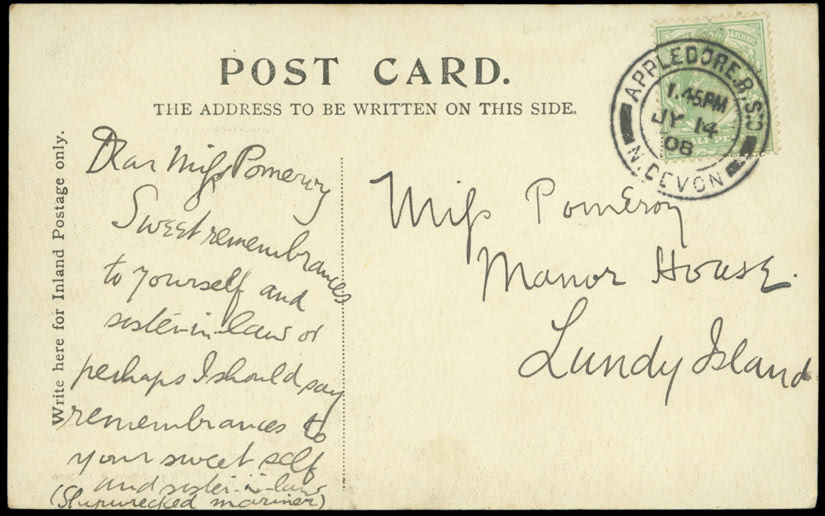 POST CARD.
THE ADDRESS TO BE WRITTEN ON THIS SIDE.
APPLEDORE.R.S.O
1.45PM
JY 14
08
N.DEVON
Write here for Inland Postage only.
Dear Miss Pomeroy
Sweet remembrances
to yourself and
sister-in-law or
perhaps I should say
remembrances to
your sweet self
and sister-in-law
(Shipwrecked mariner)
Miss Pomeroy
Manor House.
Lundy Island